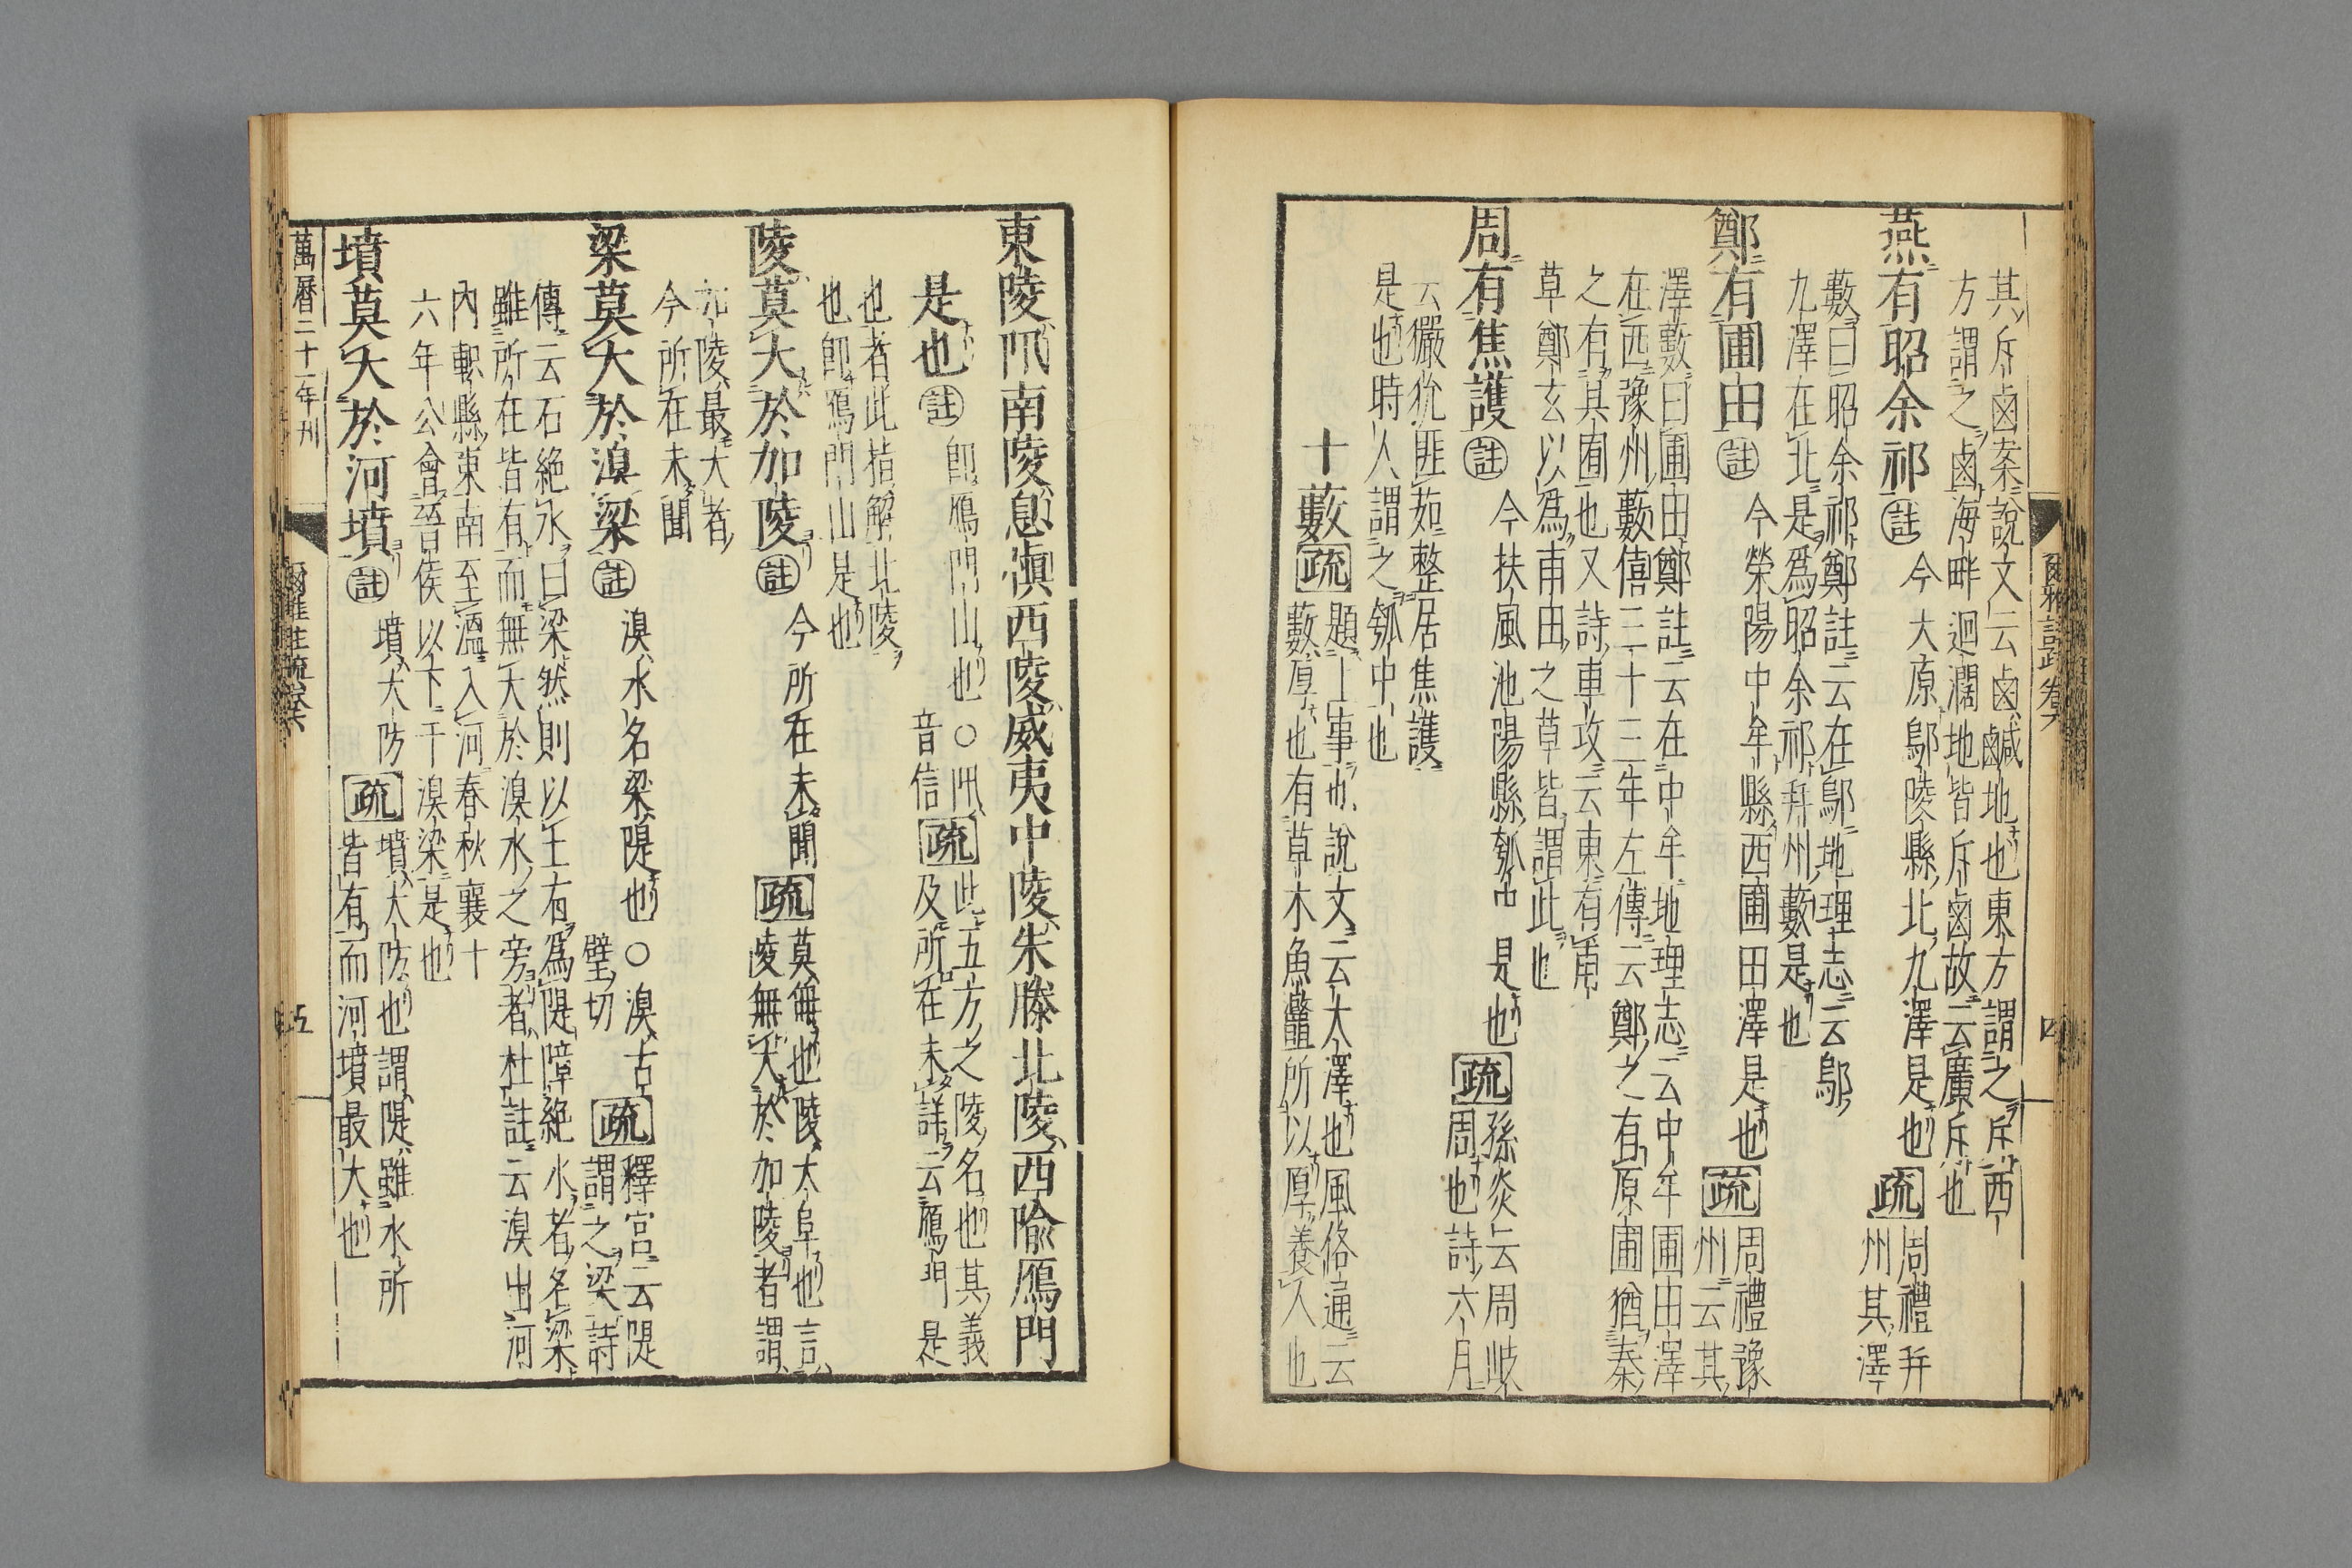 爾雅註疏 卷六
四
其斥鹵案說文云鹵鹹地也東方謂之斥西
方謂之鹵海畔迥濶地皆斥鹵故云廣斥也
燕有昭余祁註今大原鄔陵縣北九澤是也疏周禮幷
州其澤
藪曰昭余祁鄭註云在鄔地理志云鄔
九澤在北是爲昭余祁幷州藪是也
鄭有圃田註今滎陽中牟縣西圃田澤是也疏周禮豫
州云其
澤藪曰圃田鄭註云在中牟地理志云中牟圃田澤
在西豫州藪僖三十三年左傳云鄭之有原圃猶秦
之有其囿也又詩車攻云東有甫
草鄭玄以爲甫田之草皆謂此也
周有焦護註今扶風池陽縣瓠中是也疏孫炎云周岐
周也詩六月
云玁狁匪茹整居焦護
是也時人謂之瓠中也
十藪疏題上事也說文云大澤也風俗通云
藪厚也有草木魚鼈所以厚養人也
東陵阠南陵息愼西陵威夷中陵朱滕北陵西隃鴈門
是也註卽鴈門山也○阠
音信疏此五方之陵名也其義
及所在未詳云鴈門是
也者此指解北陵
也卽鴈門山是也
陵莫大於加陵註今所在未聞疏莫無也陵大阜也言
陵無大於加陵者謂
加陵最大者
今所在未聞
梁莫大於湨梁註湨水名梁隄也○湨古
璧切疏釋宮云隄
謂之梁詩
傳云石絕水曰梁然則以土石爲隄障絕水者名梁
雖所在皆有而無大於湨水之旁者杜註云湨出河
內軹縣東南至溫入河春秋襄十
六年公會晉侯以下于湨梁是也
墳莫大於河墳註墳大防疏墳大防也謂隄雖水所
皆有而河墳最大也
萬曆二十一年刊
爾雅註疏卷六
五